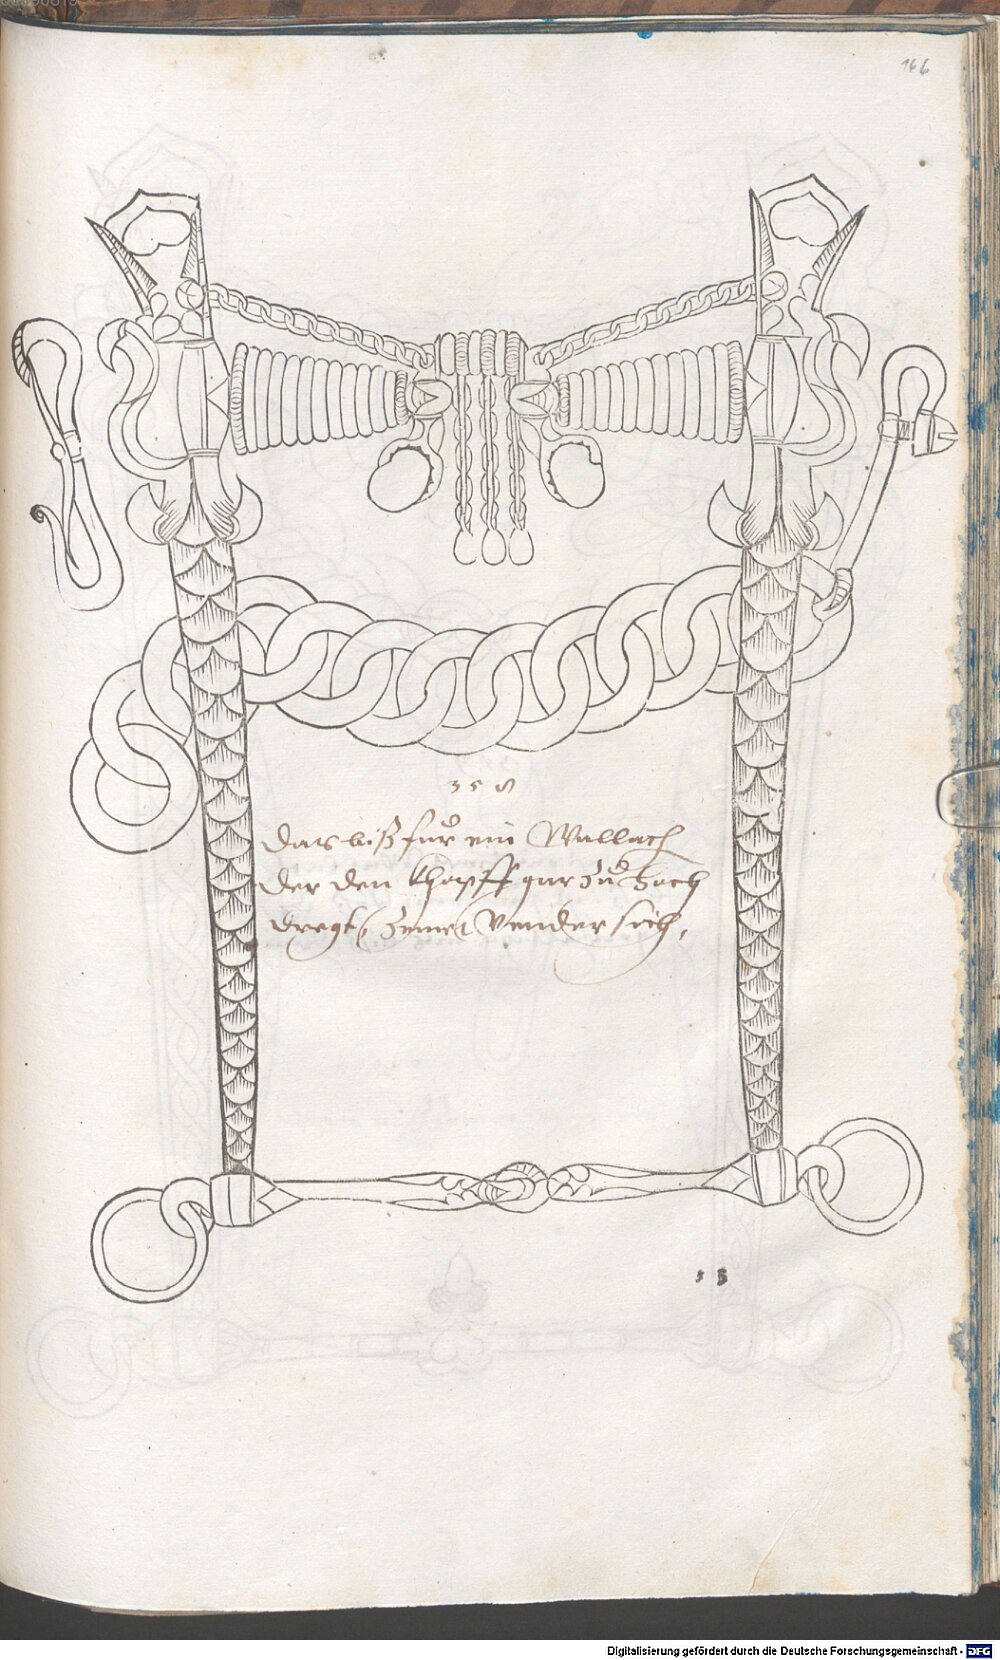 166
358
Das biß für ein Wallach
der den khopff gar zů hoch
dregt, zeme Vnder sich,
Digitalisierung gefördert durch die Deutsche Forschungsgemeinschaft - DFG